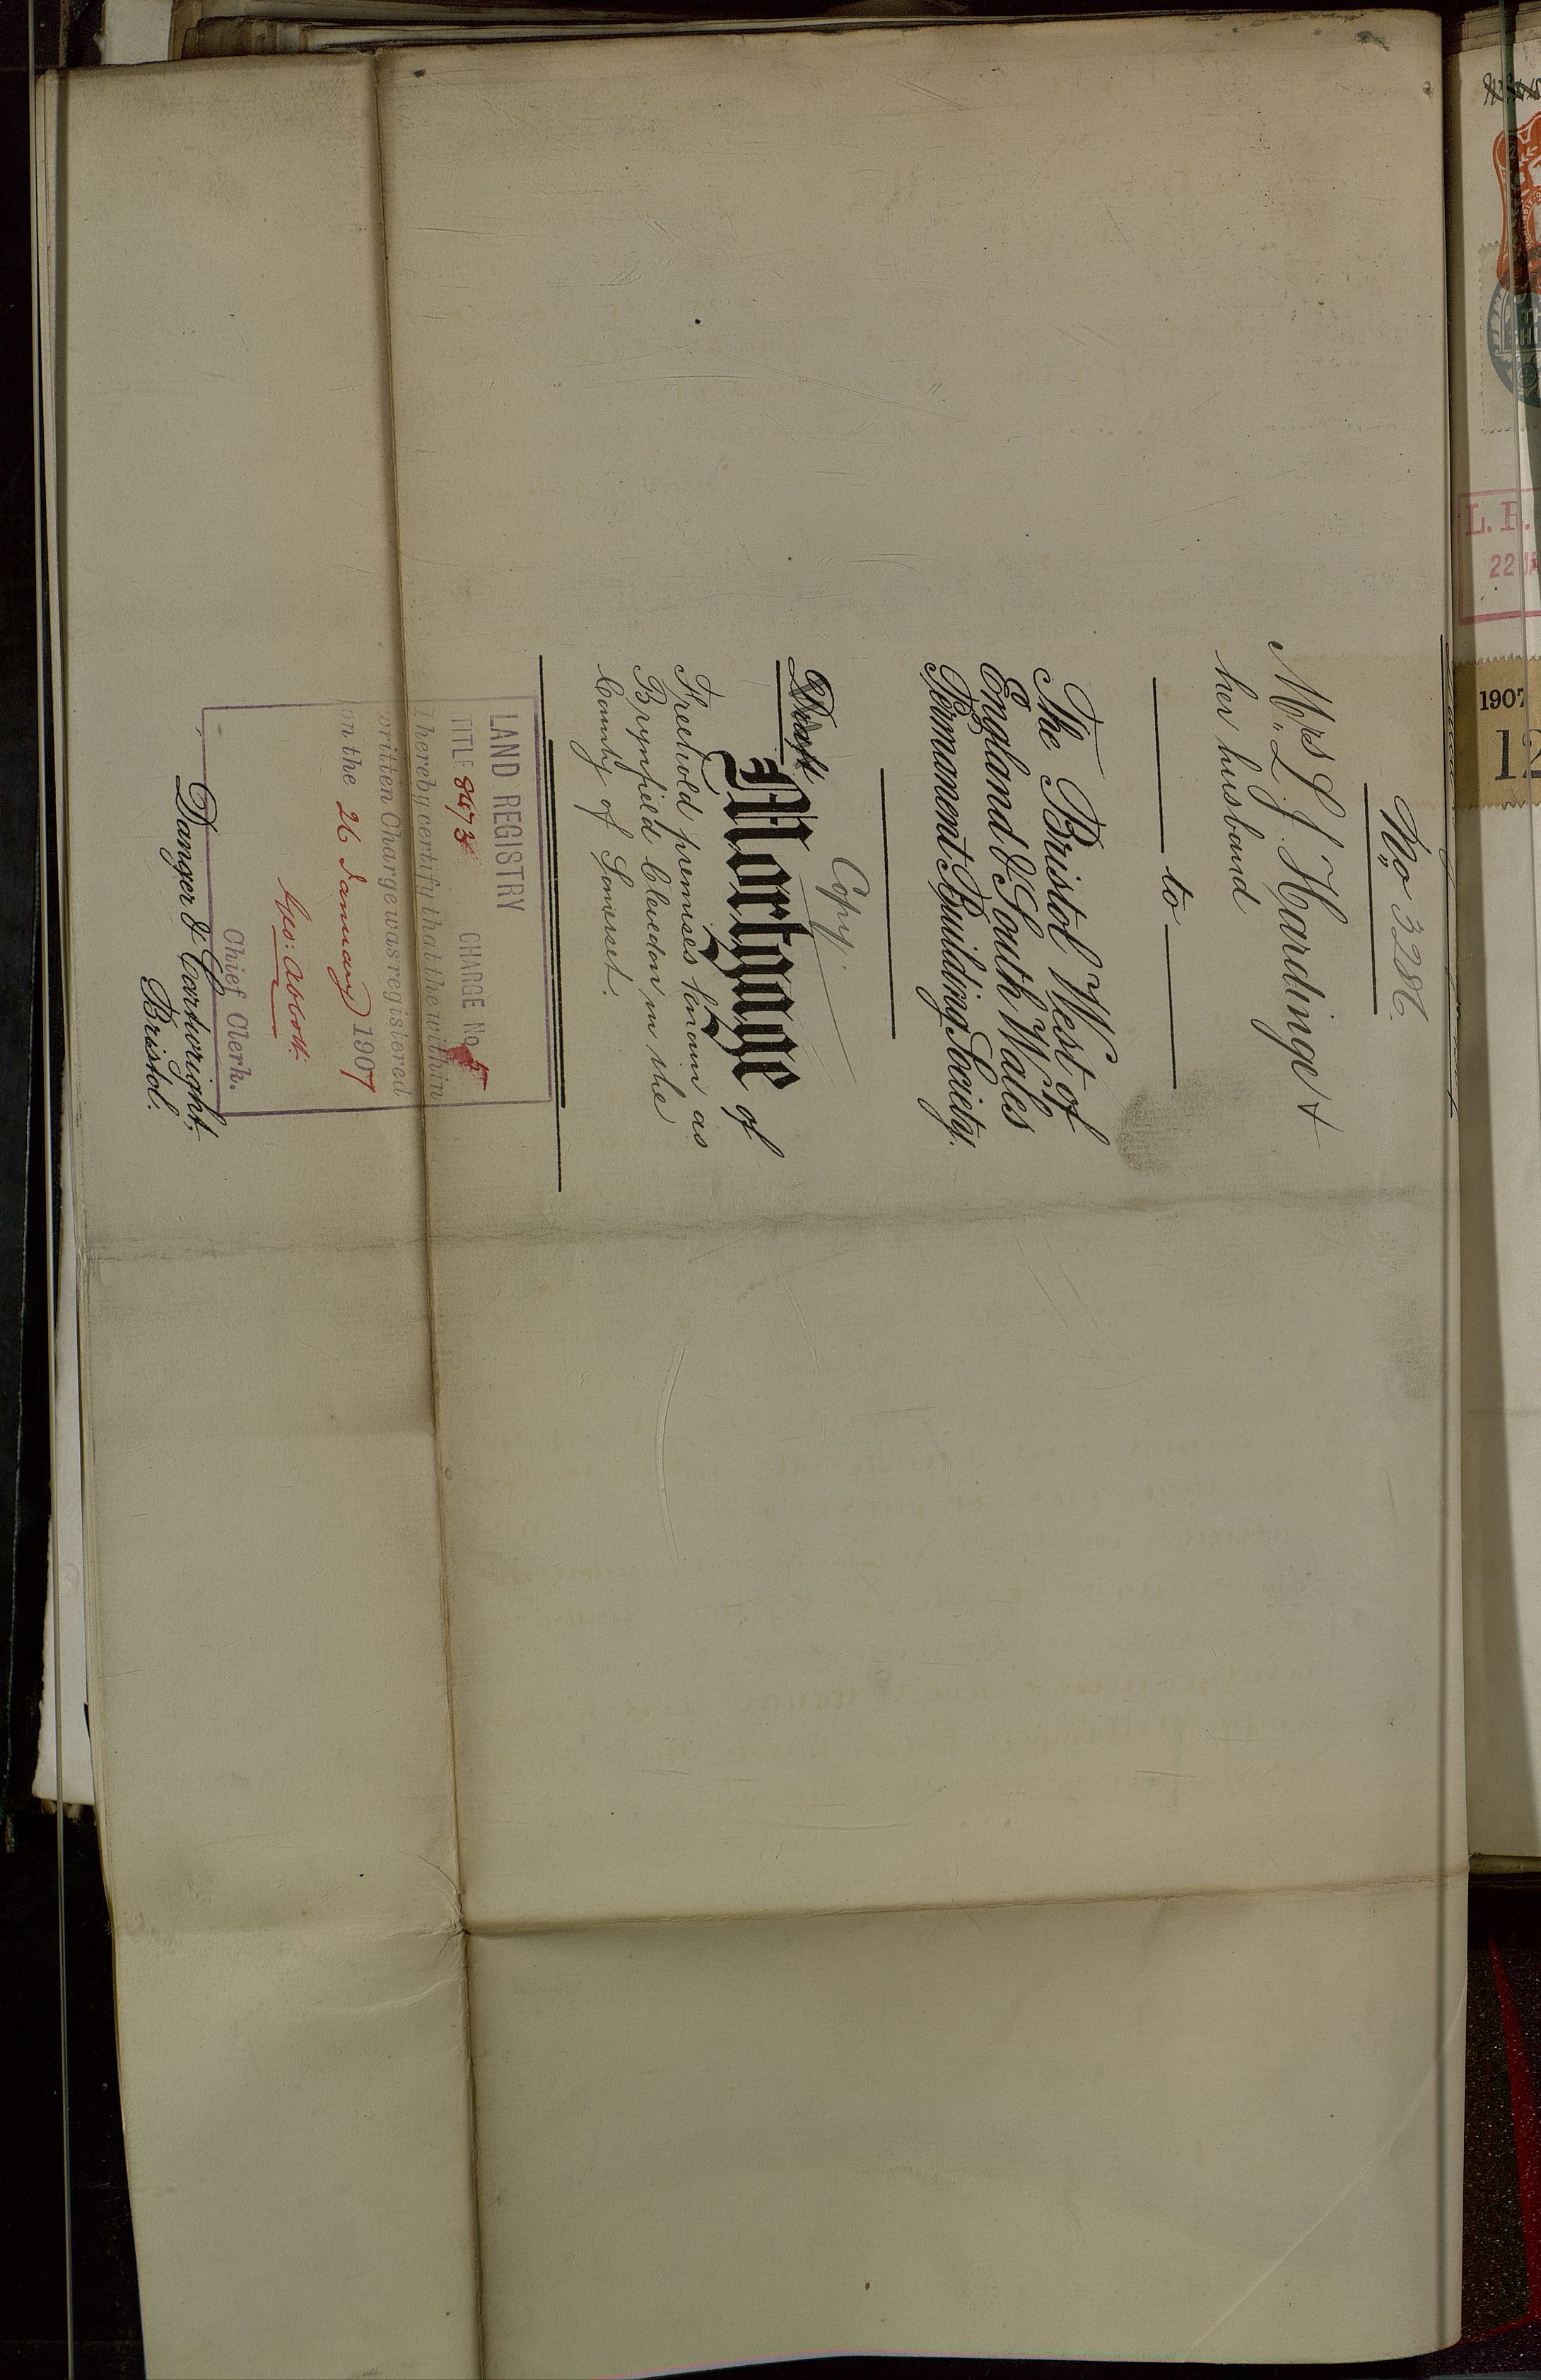 No 3286.
Mrs L. J. Hardinge &
her husband
to
The Bristol West of
England & South Wales
Permanent Building Society.
Copy.
Draft
Mortgage of
Freehold premises known as
Brynfield Clevedon in the
County of Somerset.
LAND REGISTRY
TITLE 8473 CHARGE No 5
I hereby certify that the within
written Charge was registered
on the 26 January 1907
Geo: Abbott.
Chief Clerk.
Danger & Cartwright,
Bristol.
L. R.
22 JA
1907
12